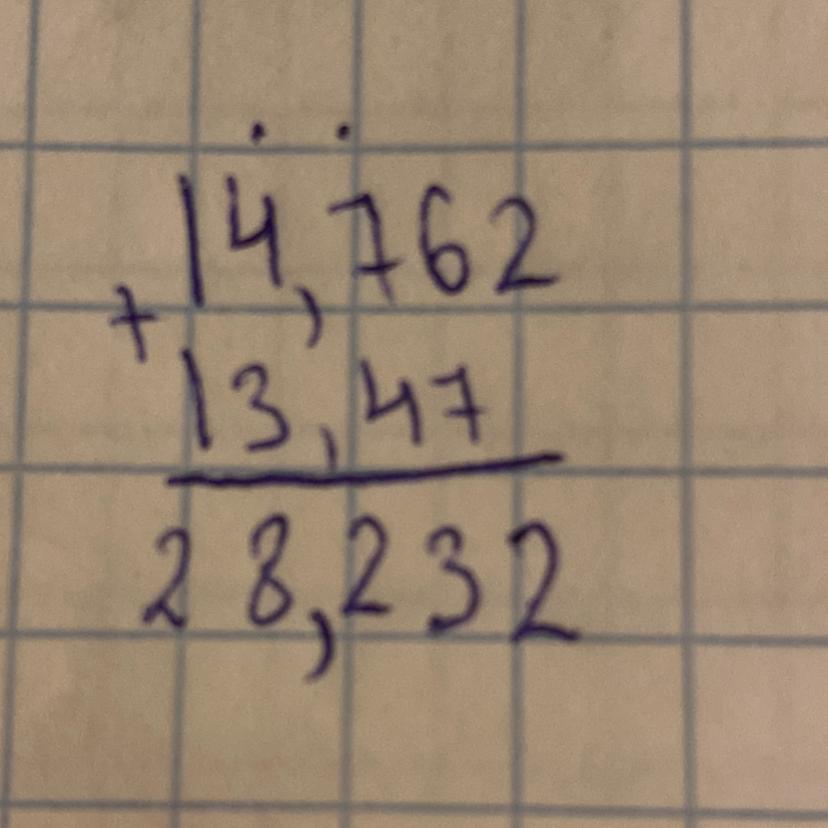 14,762
+
13,47
28,232